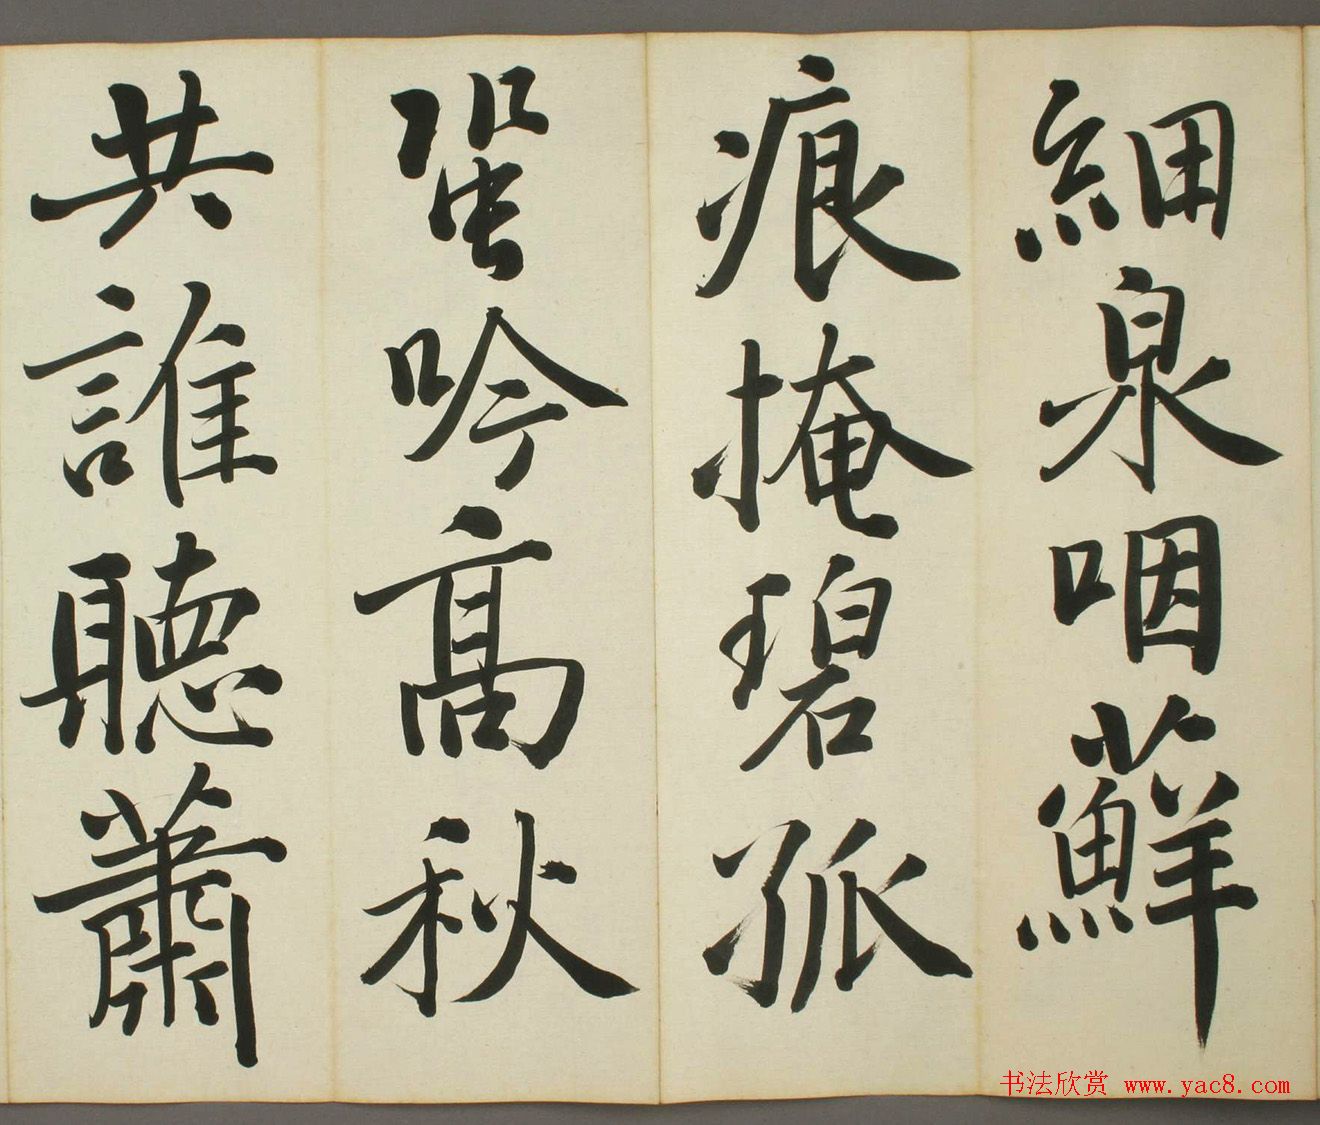 細泉咽蘚
痕掩碧孤
蛩吟高秋
共誰聽蕭
书法欣赏 www.yac8.com